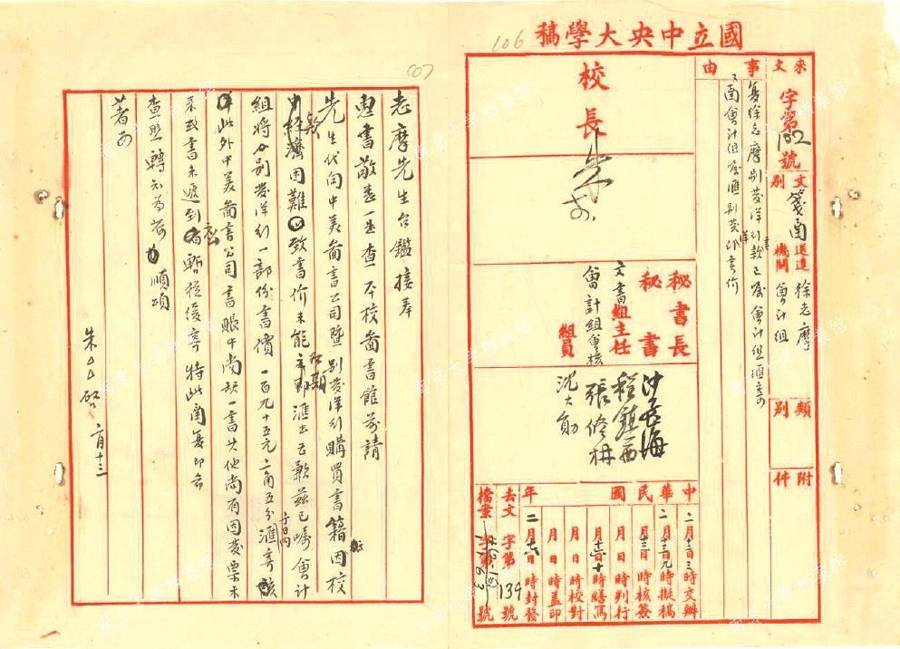 國立中央大學稿
106
來文
字第102號
事由
復徐志摩別發洋行書款已囑會計組匯寄
函會計組為匯別發印書價
文別
箋函
送達機關
徐志摩
會計組
類別
附件
校長
朱
秘書長
秘書
文書組主任
會計組會核
組員
沈大勛
中華民國 年
二月 日 時交辦
二月 日 時擬稿
月 日 時核簽
月 日 時判行
月 日 時繕寫
月 日 時校對
月 日 時蓋印
二月 日 時封發
去文 字第139號
檔案 字第 號
107
志摩先生台鑑接奉
惠書敬悉一是查本校圖書館前請
先生代向中美圖書公司暨別發洋行購買書籍因校
中經濟困難致書價未能立即匯出至歉茲已囑會計
組將別發洋行一部份書價一百九十五元六角五分匯寄
此外中美圖書公司書賬中尚缺一書其他尚有因發票未
來致書未遞到應暫從緩寄特此函復即希
查照轉知為荷順頌
著安
朱 啟 二月十三